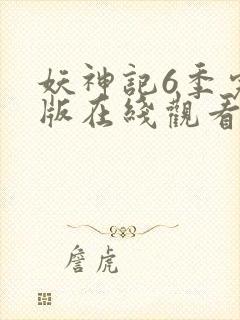 妖神記6季
版在綫觀看
詹虎